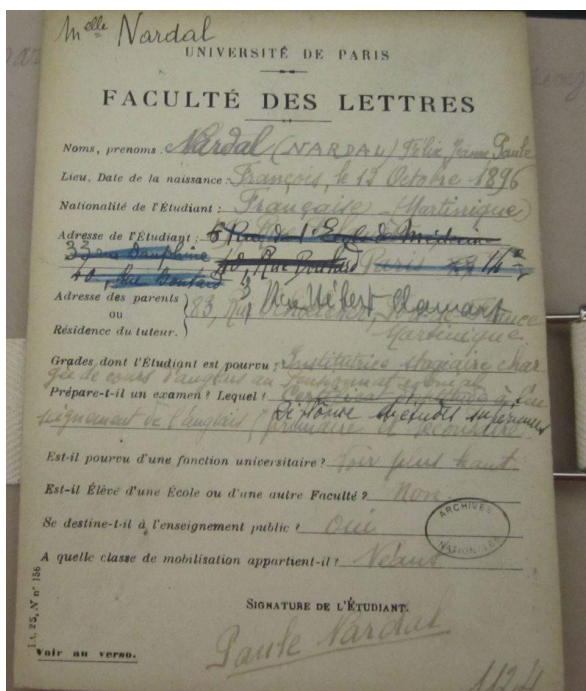 Melle Nardal
UNIVERSITÉ DE PARIS
FACULTÉ DES LETTRES
Noms, prénoms : Nardal (NARDAL) Félix Jeanne Paule
Lieu, Date de la naissance : François, le 12 Octobre 1896
Nationalité de l'Étudiant : Française (Martinique)
Adresse de l'Étudiant : 5 Rue de l'École de Médecine
33 rue Dauphine 40, Rue Boutard Paris
40, Rue Boutard
Adresse des parents
ou
Résidence du tuteur.
83, Rue Schoelcher, France
3, Rue Hébert Clamart
Martinique
Grades dont l'Étudiant est pourvu : Institutrice stagiaire char
gée de cours d'anglais au Pensionnat
Prépare-t-il un examen ? Lequel ?
Diplôme d'études supérieures
seignement de l'anglais (primaire et secondaire)
Est-il pourvu d'une fonction universitaire ? Voir plus haut
Est-il Élève d'une École ou d'une autre Faculté ? Non
Se destine-t-il à l'enseignement public ? Oui
A quelle classe de mobilisation appartient-il ? Néant
ARCHIVES NATIONALES
SIGNATURE DE L'ÉTUDIANT.
Paule Nardal
I.t. 25, N n° 156
Voir au verso.
1124